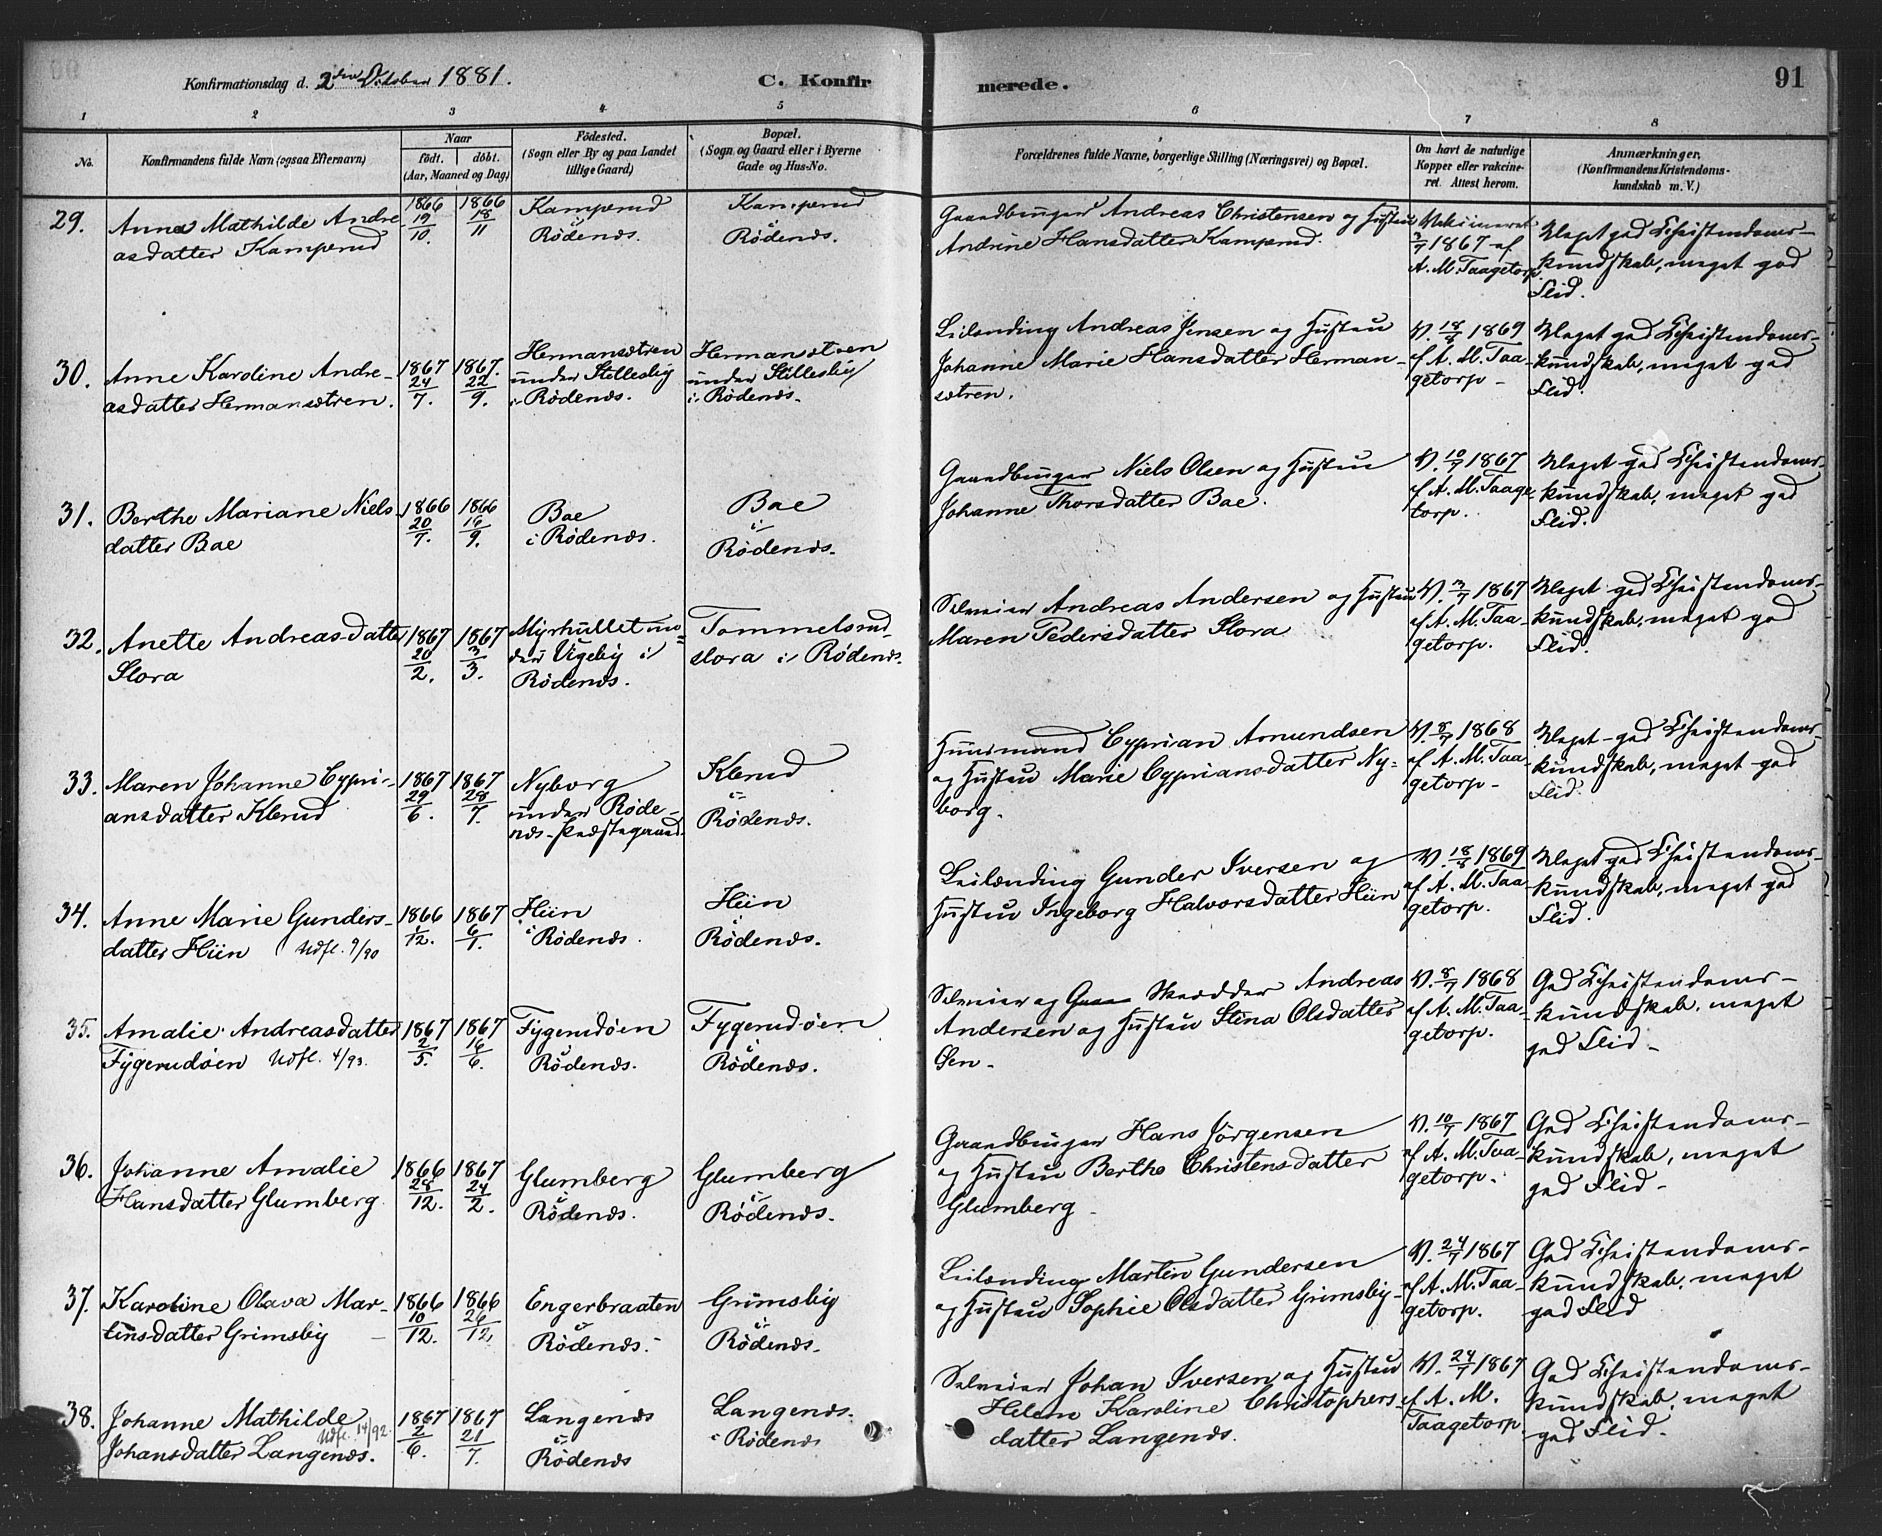 Konfirmationsdag d. 2den October 1881. C. Konfirmerede. 91
1 2 3 4 5 6 7 8
No.
Konfirmandens fulde Navn (ogsaa Efternavn)
Naar
födt. döbt.
(Aar, Maaned og Dag)
Födested.
(Sogn eller By og paa Landet
tillige Gaard)
Bopæl.
(Sogn og Gaard eller i Byerne
Gade og Hus-No.
Forældrenes fulde Navne, borgerlige Stilling (Næringsvei) og Bopæl.
Om havt de naturlige
Kopper eller vakcine-
ret. Attest herom.
Anmærkninger.
(Konfirmandens Kristendoms-
kundskab m. V.)
29.
Anna Mathilde Andre-
asdatter Kamperud
1866 19/10.
1866 18/11
Kamperud
i
Rödenæs.
Kamperud
i
Rödenæs.
Gaardbruger Andreas Christensen og Hustru
Andrine Hansdatter Kamperud.
Vakcineret
3/7 1867 af
A. M. Taagetorp.
Meget god Christendoms-
kundskab, meget god
Flid.
30.
Anne Karoline Andre-
asdatter Hermansætren.
1867 24/7.
1867. 22/9.
Hermansætren
under Stillesby
i Rödenæs.
Hermansætren
under Stillesby
i Rödenæs.
Leilænding Andreas Jensen og Hustru
Johanne Marie Hansdatter Herman-
sætren.
V. 18/8 1869
af A. M. Taa-
getorp -
Meget god Christendoms-
kundskab, meget god
Flid.
31.
Berthe Mariane Niels-
datter Bae
1866 20/7.
1866 16/9.
Bae
i Rödenæs.
Bae
i
Rödenæs.
Gaardbruger Niels Olsen og Hustru
Johanne Thorsdatter Bae.
V. 10/7 1867
af A. M. Taage
torp.
Meget god Christendoms-
kundskab, meget god
Flid.
32.
Anette Andreasdatter
Slora
1867 20/2.
1867 3/3.
Myrhullet un-
der Vigeby i
Rödenæs.
Tommelsrud-
slora i Rödenæs.
Selveier Andreas Andersen og Hustru
Maren Pedersdatter Slora
V. 3/7 1867
af A. M. Taa-
getorp.
Meget god Christendoms-
kundskab, meget god
Flid.
33.
Maren Johanne Cypri-
ansdatter Klerud
1867 29/6.
1867 28/7.
Nyborg
under Röde-
næs-Præstegaard.
Klerud
i
Rödenæs.
Husmand Cyprian Amundsen
og Hustru Marie Cypriansdatter Ny-
borg.
V. 8/7 1868
af A. M. Taa-
getorp -
Meget god Christendoms-
kundskab, meget god
Flid.
34.
Anne Marie Gunders-
datter Hiin Udfl. 9/90
1866 1/12.
1867 6/1.
Hiin
i Rödenæs.
Hiin
i
Rödenæs.
Leilænding Gunder Iversen og
Hustru Ingeborg Halvorsdatter Hiin
V. 18/8 1869
af A. M. Taa-
getorp.
Meget god Christendoms-
kundskab, meget god
Flid.
35.
Amalie Andreasdatter
Fygerudöen Udfl. 4/93.
1867 2/5.
1867 16/6.
Fygerudöen
i
Rödenæs.
Fygerudöen
i
Rödenæs.
Selveier og Skrædder Andreas
Andersen og Hustru Stina Olsdatter
Öen -
V. 8/7 1868
af A. M. Taa-
getorp.
God Christendoms-
kundskab, meget
god Flid -
36.
Johanne Amalie
Hansdatter Glumberg
1866 28/12.
1867 24/2.
Glumberg
i
Rödenæs.
Glumberg
i
Rödenæs.
Gaardbruger Hans Jörgensen
og Hustru Berthe Christensdatter
Glumberg -
V. 10/7 1867
af A. M. Taa-
getorp.
God Christendoms-
kundskab, meget
god Flid -
37.
Karoline Olava Mar-
tinsdatter Grimsby
1866 10/12.
1866 26/12.
Engerbraaten
i
Rödenæs.
Grimsby
i
Rödenæs.
Leilænding Martin Gundersen
og Hustru Sophie Olsdatter Grimsby -
V. 24/7 1867
af A. M. Taa-
getorp.
God Christendoms-
kundskab, meget
god Flid
38.
Johanne Mathilde Udfl. 14/92.
Johansdatter Langenæs.
1867 2/6.
1867 21/7.
Langenæs
i
Rödenæs
Langenæs.
i Rödenæs
Selveier Johan Iversen og Hustru
Helene Karoline Christophers-
datter Langenæs.
V. 24/7 1867
af A. M.
Taagetorp.
God Christendoms-
kundskab, meget
god Flid.